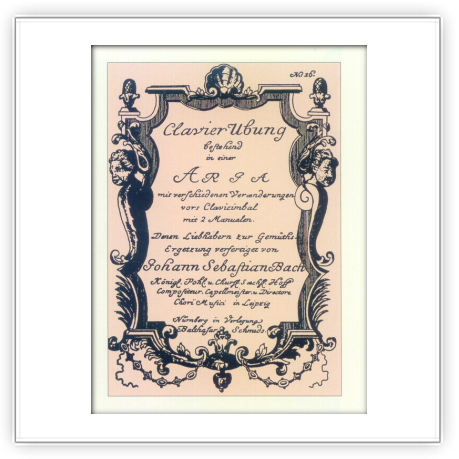 No. 16.
Clavier Ubung
bestehend
in einer
ARIA
mit verschiedenen Veraenderungen
vors Clavicimbal
mit 2 Manualen.
Denen Liebhabern zur Gemüths-
Ergetzung verfertiget von
Johann Sebastian Bach
Königl. Pohl. u. Churfl. Sæchs. Hoff-
Compositeur, Capellmeister, u. Directore
Chori Musici in Leipzig
Nürnberg in Verlegung
Balthasar Schmids